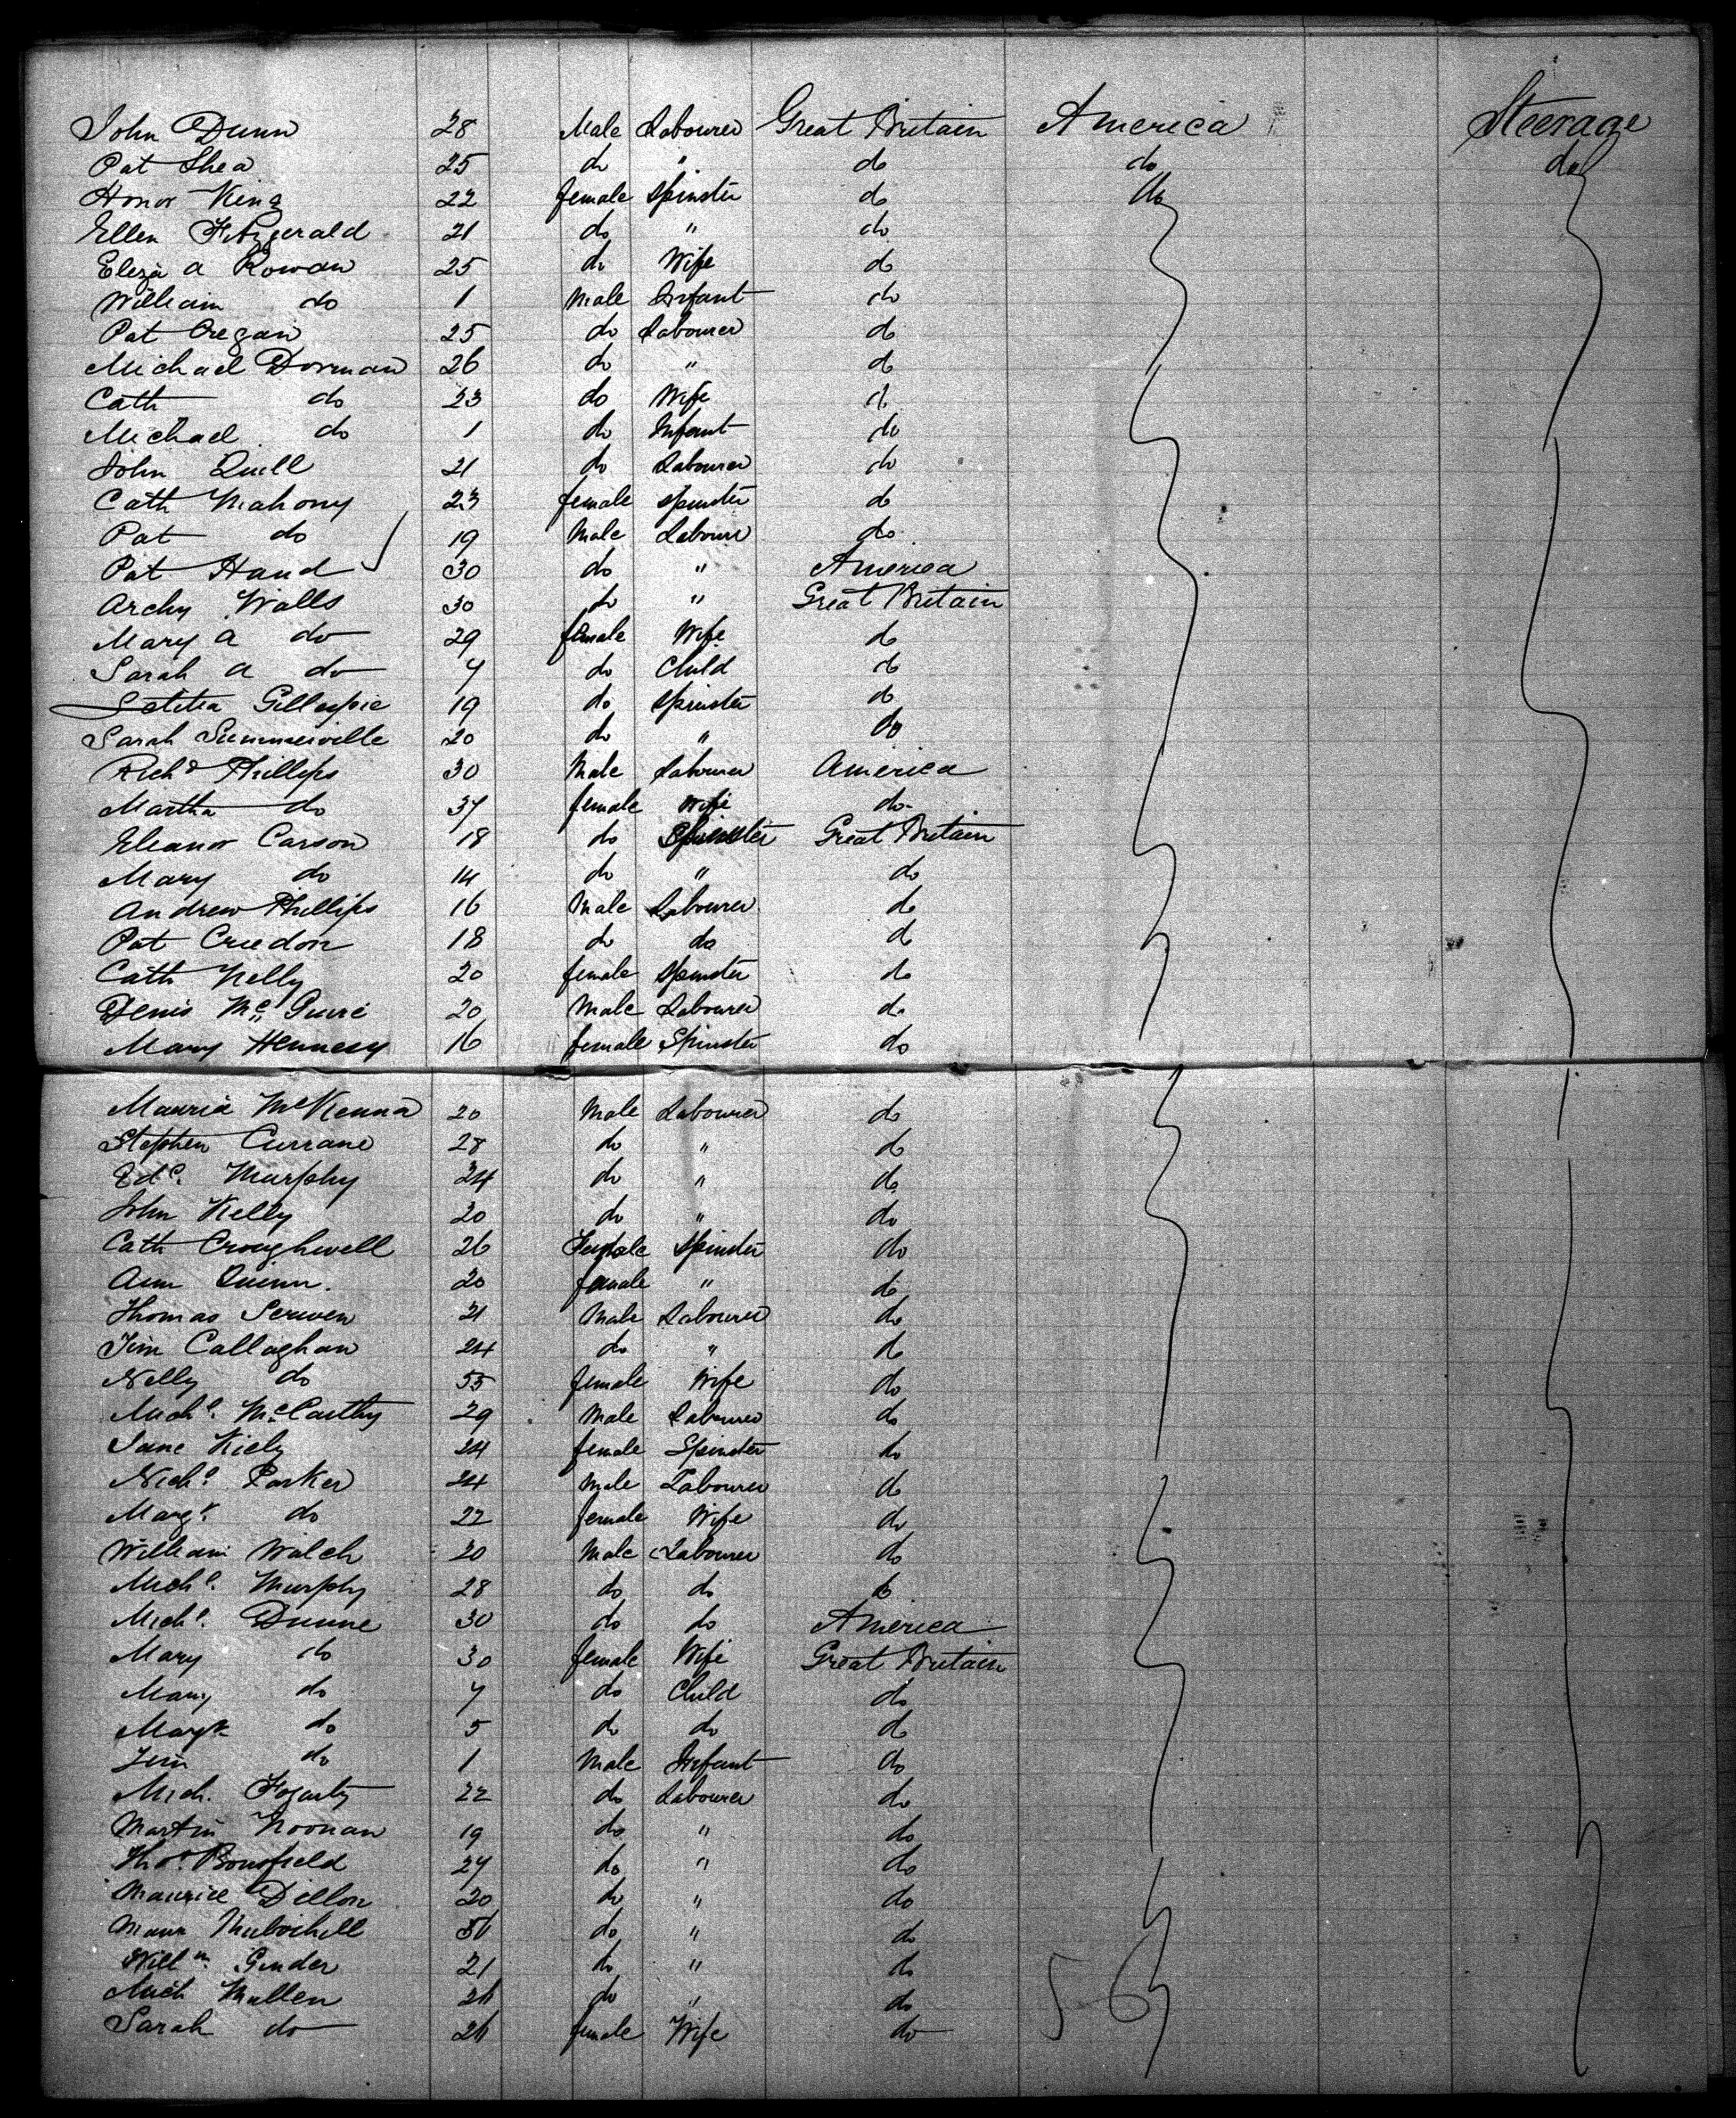 John Dunn 28 Male Labourer Great Britain America Steerage
Pat Shea 25 do " do do do
Honor King 22 female Spinster do do
Ellen Fitzgerald 21 do " do
Eliza A Rowan 25 do Wife do
William do 1 Male Infant do
Pat Oregan 25 do Labourer do
Michael Dorman 26 do " do
Cath do 23 do Wife do
Michael do 1 do Infant do
John Quill 21 do Labourer do
Cath Mahony 23 female Spinster do
Pat do 19 Male Labourer do
Pat Hand 30 do " America
Archy Walls 30 do " Great Britain
Mary A do 29 female Wife do
Sarah A do 7 do Child do
Letitia Gillespie 19 do Spinster do
Sarah Summerville 20 do " do
Richd Phillips 30 Male Labourer America
Martha do 37 female Wife do
Eleanor Carson 18 do Spinster Great Britain
Mary do 14 do " do
Andrew Phillips 16 Male Labourer do
Pat Creedon 18 do do do
Cath Kelly 20 female Spinster do
Denis McGuire 20 Male Labourer do
Mary Hennesy 16 female Spinster do
Maurice McKenna 20 Male Labourer do
Stephen Currane 28 do " do
Edd. Murphy 24 do " do
John Kelly 20 do " do
Cath Croughwell 26 Female Spinster do
Ann Quinn. 20 female " do
Thomas 21 Male Labourer do
Tim Callaghan 24 do " do
Nelly do 55 female Wife do
Michl. McCarthy 29 Male Labourer do
Jane Kiely 24 female Spinster do
Nichs. Parker 24 Male Labourer do
Margt. do 22 female Wife do
William Walch 20 Male Labourer do
Michl. Murphy 28 do do do
Michl. Dunne 30 do do America
Mary do 30 female Wife Great Britain
Mary do 7 do Child do
Margt do 5 do do do
Jim do 1 Male Infant do
Mich. Fogarty 22 do Labourer do
Martin Noonan 19 do " do
Thos. Bousfield 27 do " do
Maurice Dillon 20 do " do
Maur do " do
Willm. Ginder 21 do " do
Mich Mullen 26 do " do
Sarah do 26 female Wife do
56